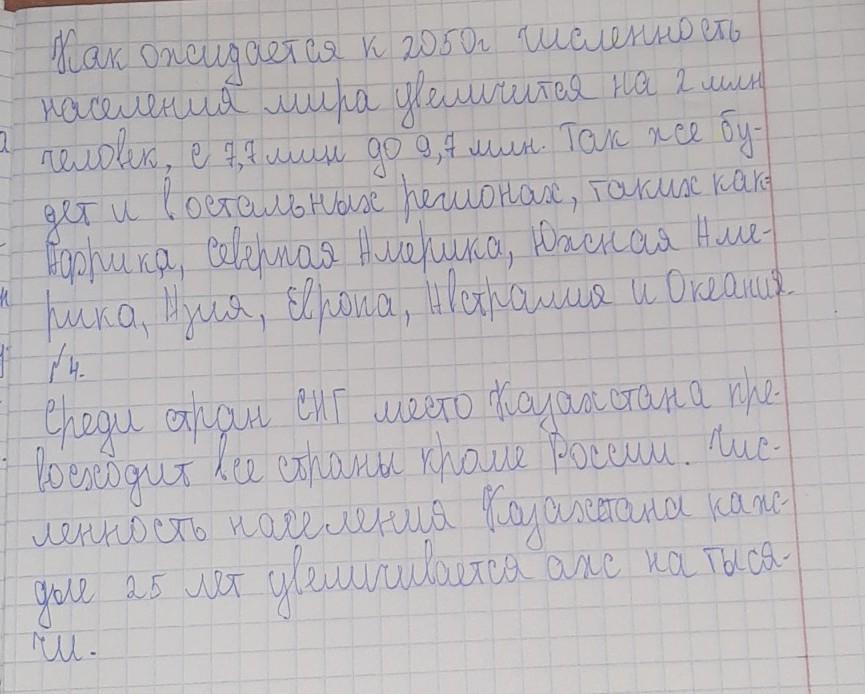 Как ожидается к 2050г численность
населения мира увеличится на 2 млн
человек, с 7,7 млн до 9,7 млн. Так же бу-
дет и в остальных регионах, таких как
Африка, Северная Америка, Южная Аме-
рика, Азия, Европа, Австралия и Океания.
№4.
Среди стран СНГ место Казахстана пре-
восходит все страны кроме России. Чис-
ленность населения Казахстана каж-
дые 25 лет увеличивается аж на тыся-
чи.